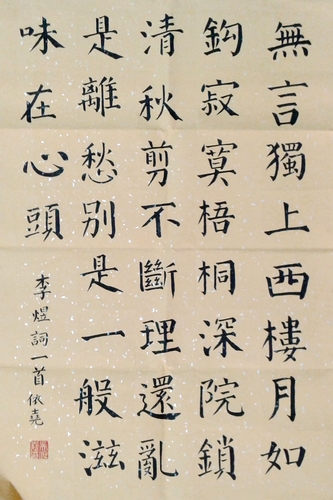 無言獨上西樓月如
鈎寂寞梧桐深院鎖
清秋剪不斷理還亂
是離愁别是一般滋
味在心頭
李煜詞一首依堯